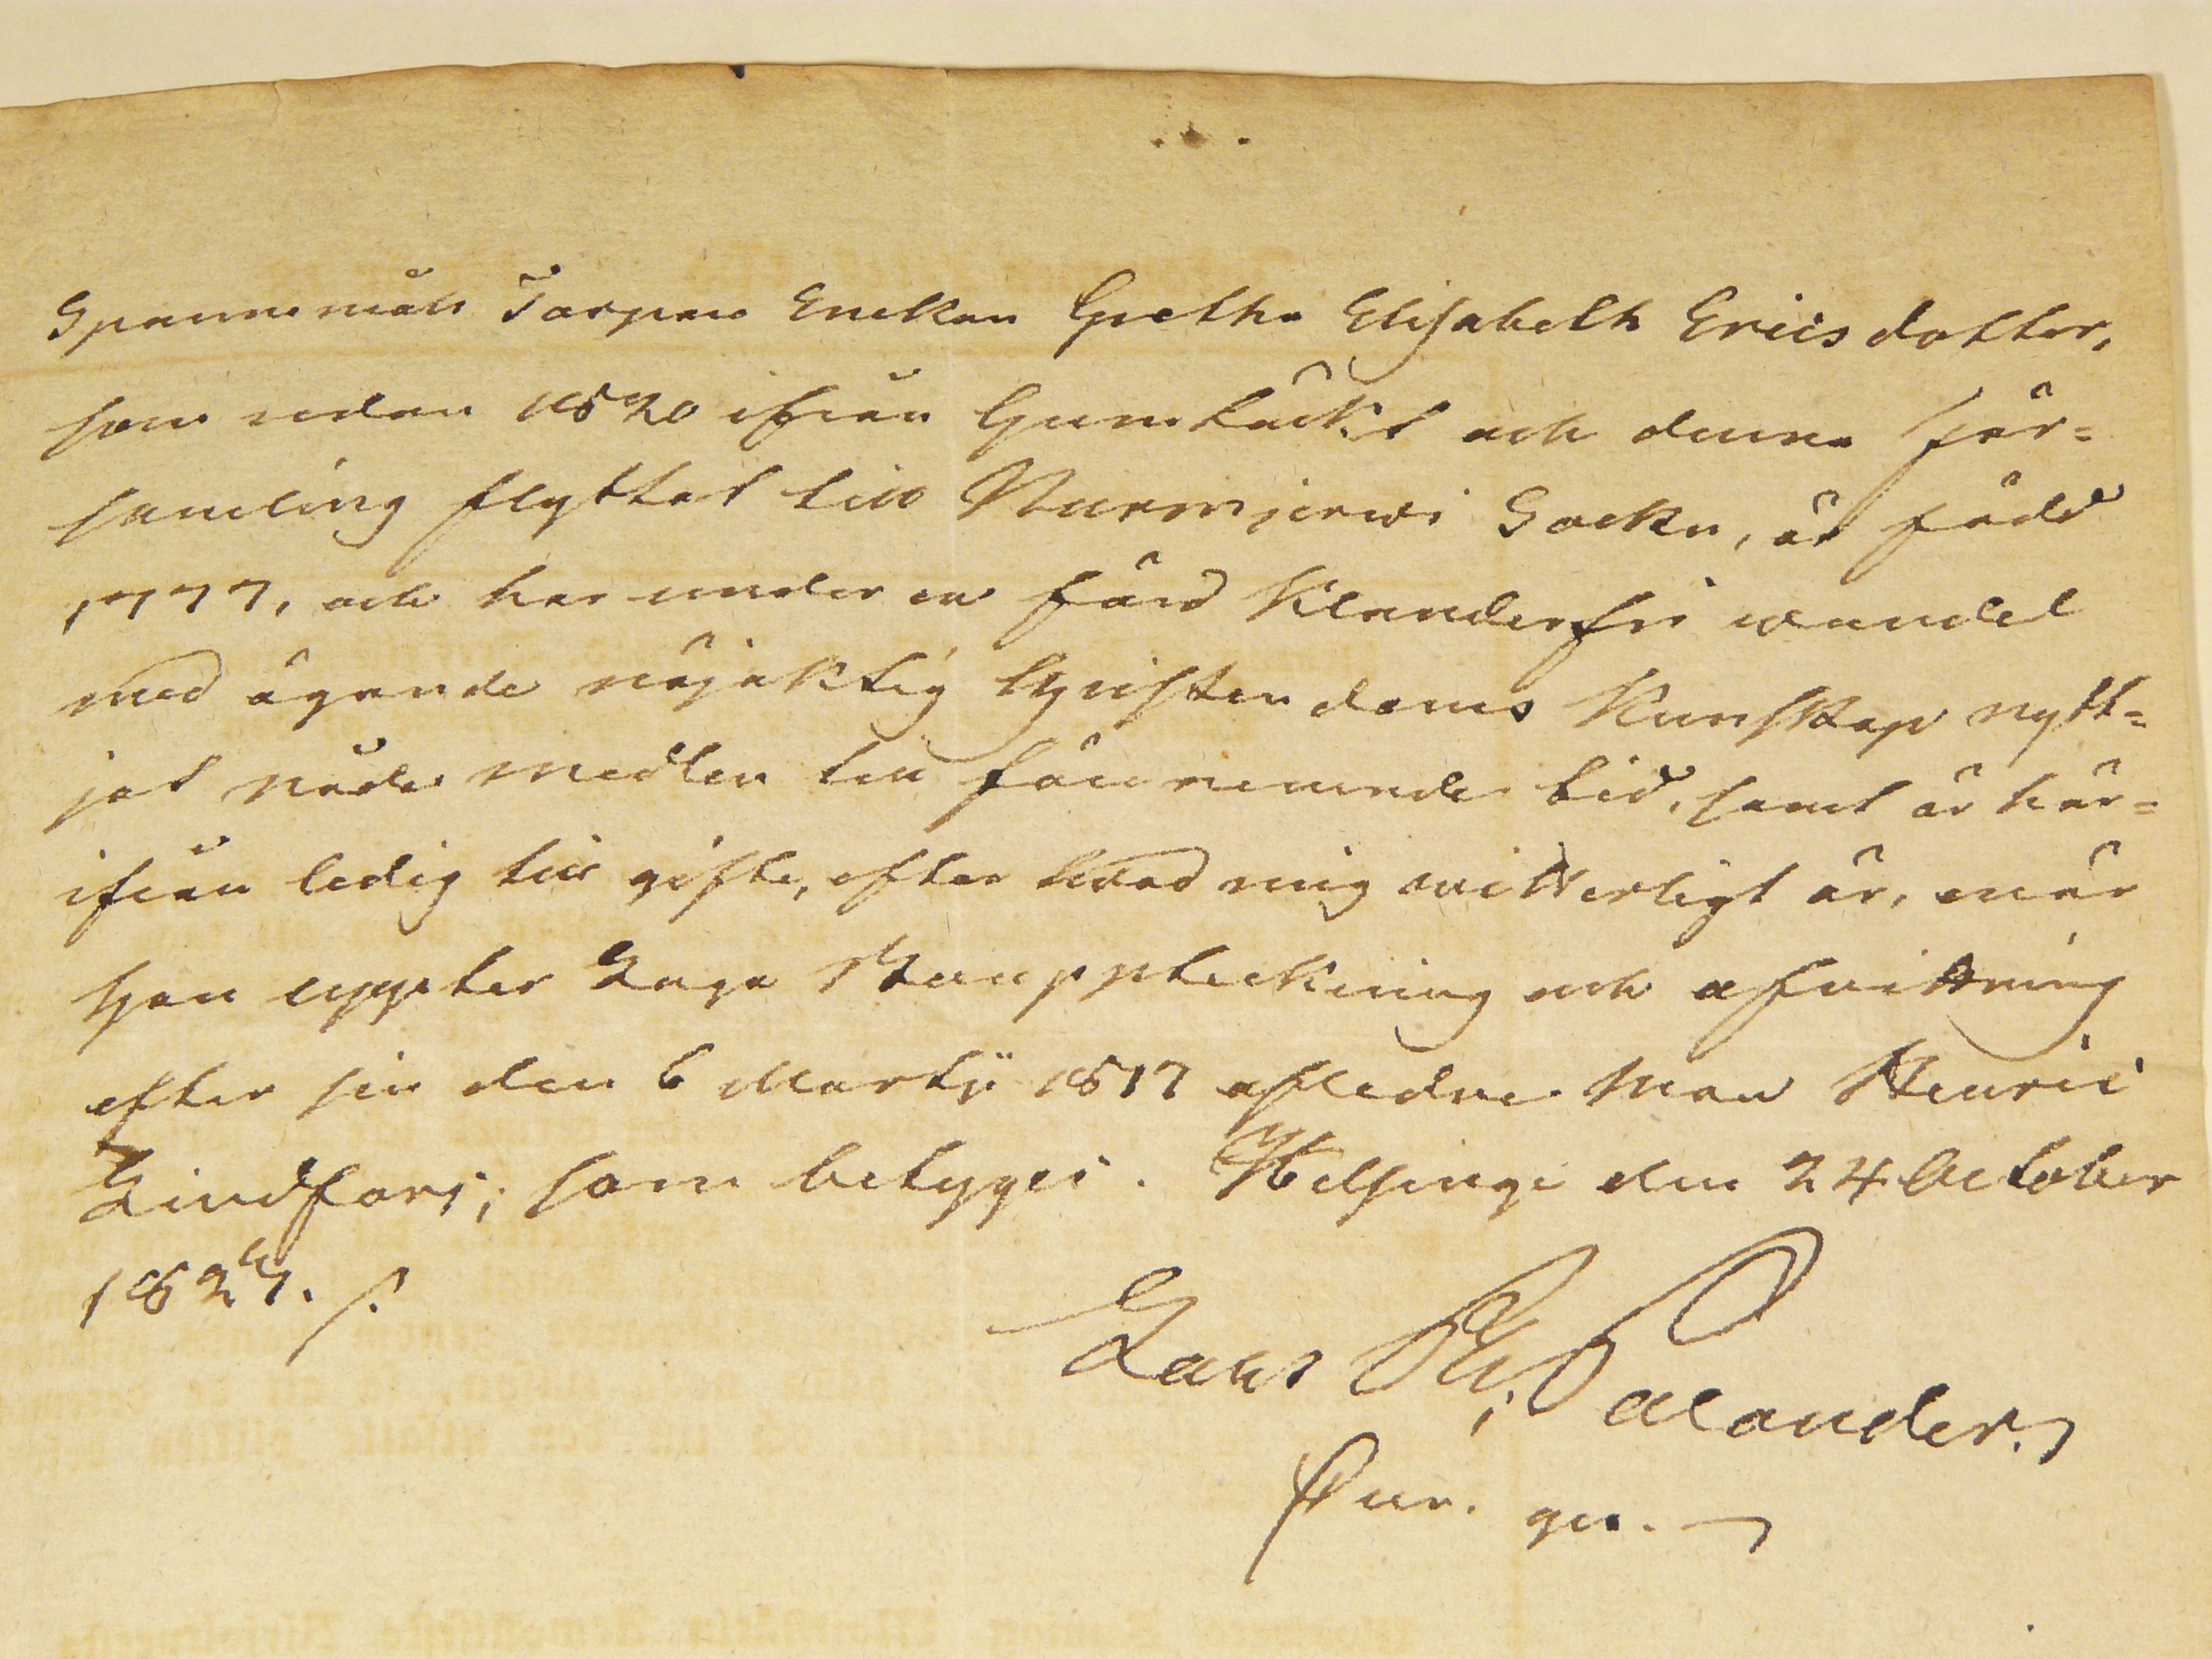 Spannmåls Torpare Enckan Gretha Elisabeth Ericsdotter,
som redan 1820 ifrån Gumtäckt och denna för=
samling flyttat till Nurmijerwi Sockn, är född
1777, och har under en förd Klanderfri wandel
med ägande nöjaktig Christendoms Kunskap nytt=
jat nåde medlen till förenemnde tid, samt är här=
ifrån ledig till gifte, efter hvad mig witterligt är, när
hon uppter Laga Bouppteckning och afvittring
efter sin den 6 Martji 1817 afledne Man Henric
Lindfors; som betygas. Helsinge den 24 October
1827.
Lars Palander.